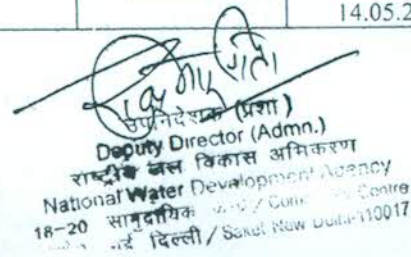 14.05.2
उपनिदेशक (प्रशा)
Deputy Director (Admn.)
राष्ट्रीय जल विकास अभिकरण
National Water Development Agency
18-20 सामुदायिक / Centre
नई दिल्ली / Saket New Delhi-110017